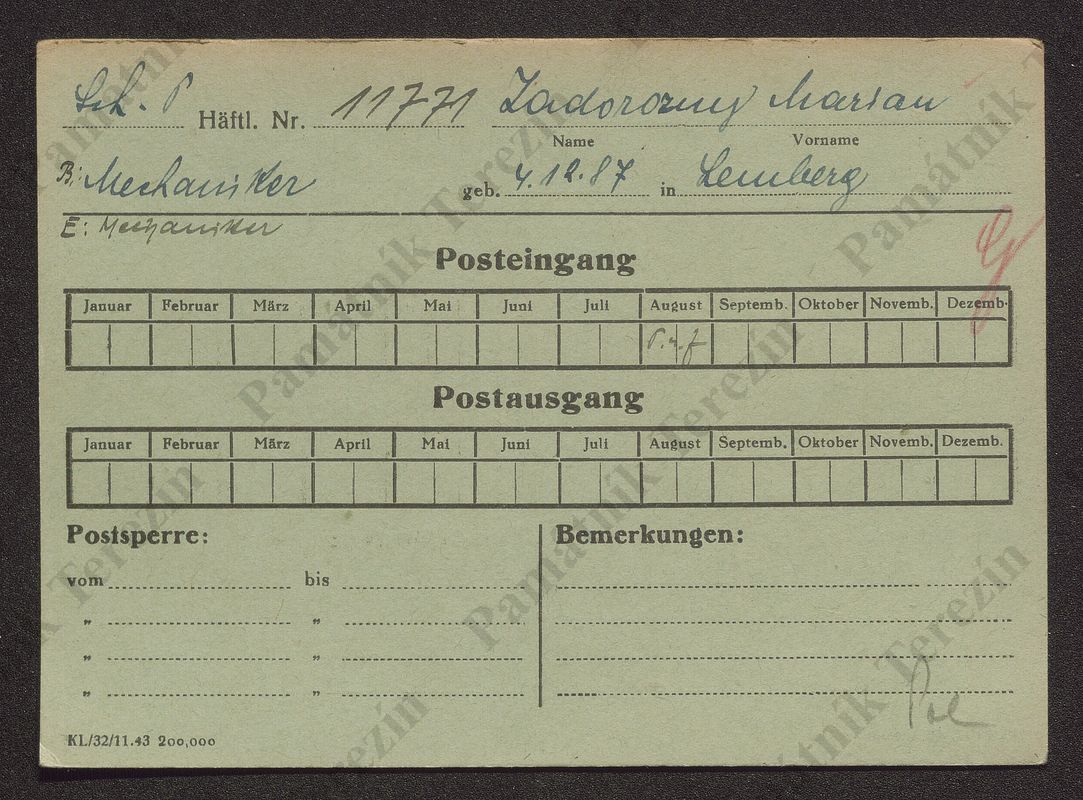 Sch. P Häftl. Nr. 11771 Zadorozny Marian
Name Vorname
B: Mechaniker geb. 4.12.87 in Lemberg
E: Mechaniker
Posteingang
Januar Februar März April Mai Juni Juli August Septemb. Oktober Novemb. Dezemb.
Postausgang
Januar Februar März April Mai Juni Juli August Septemb. Oktober Novemb. Dezemb.
Postsperre: Bemerkungen:
vom bis
„ „
„ „
„ „
Pol
KL/32/11.43 200,000
Památník Terezín